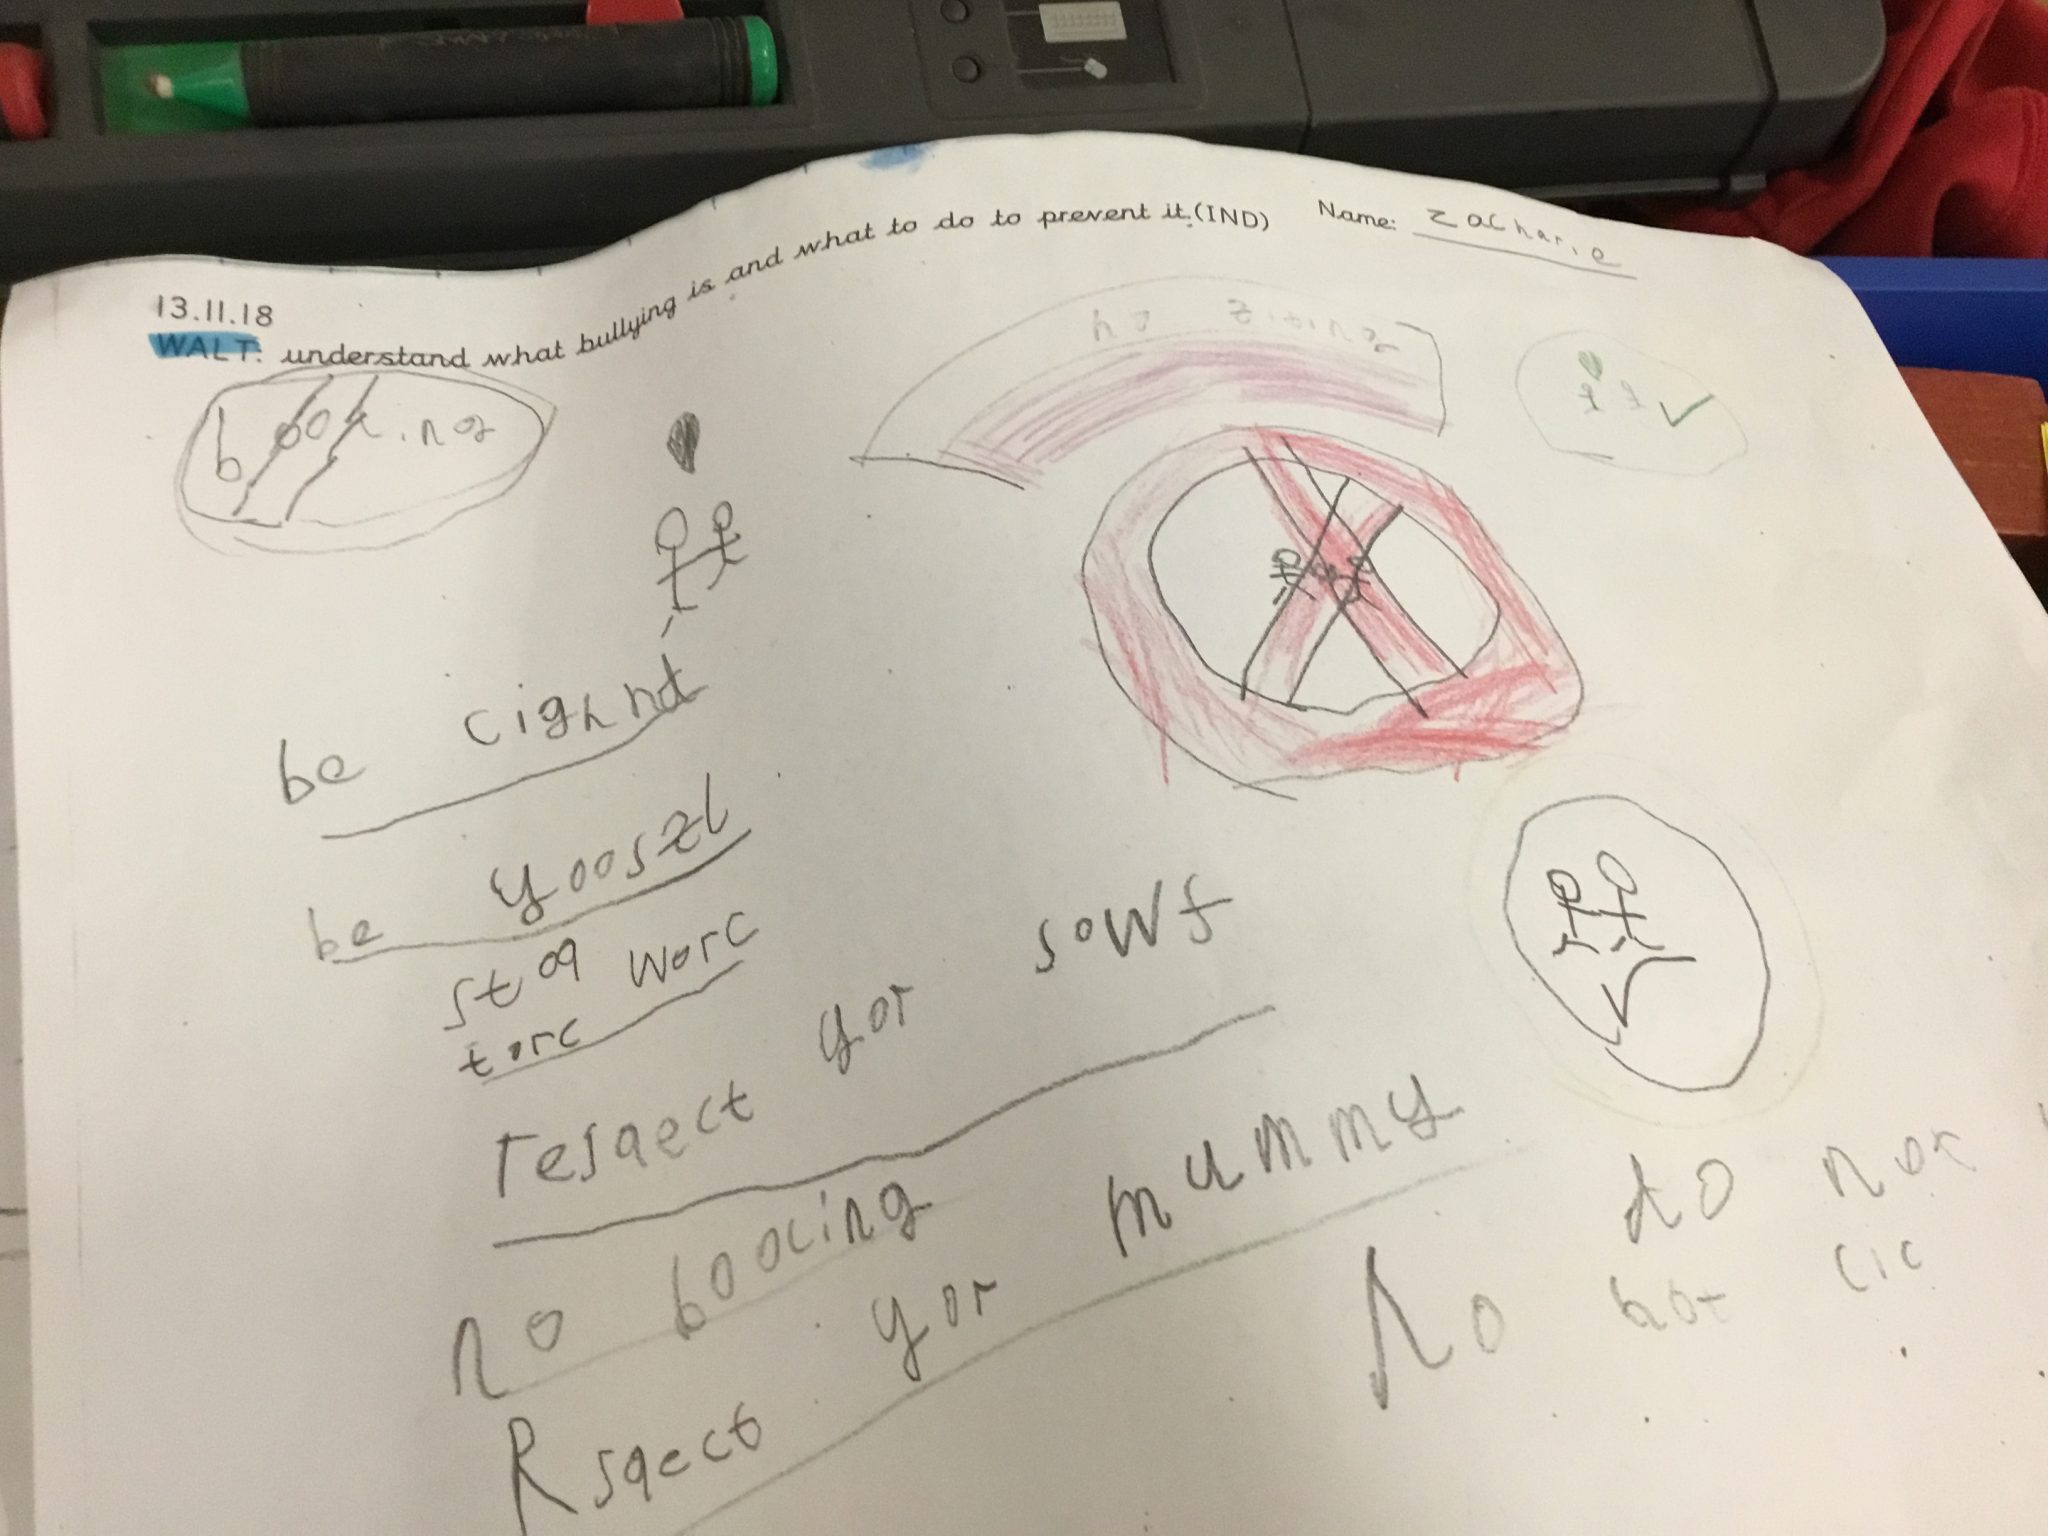 13.11.18
WALT: understand what bullying is and what to do to prevent it.(IND) Name: Zacharie
be cighnd
be yooszl
stop worc
torc
respect yor sowf
no boocing
Rspect yor mummy
do not
No hot cic